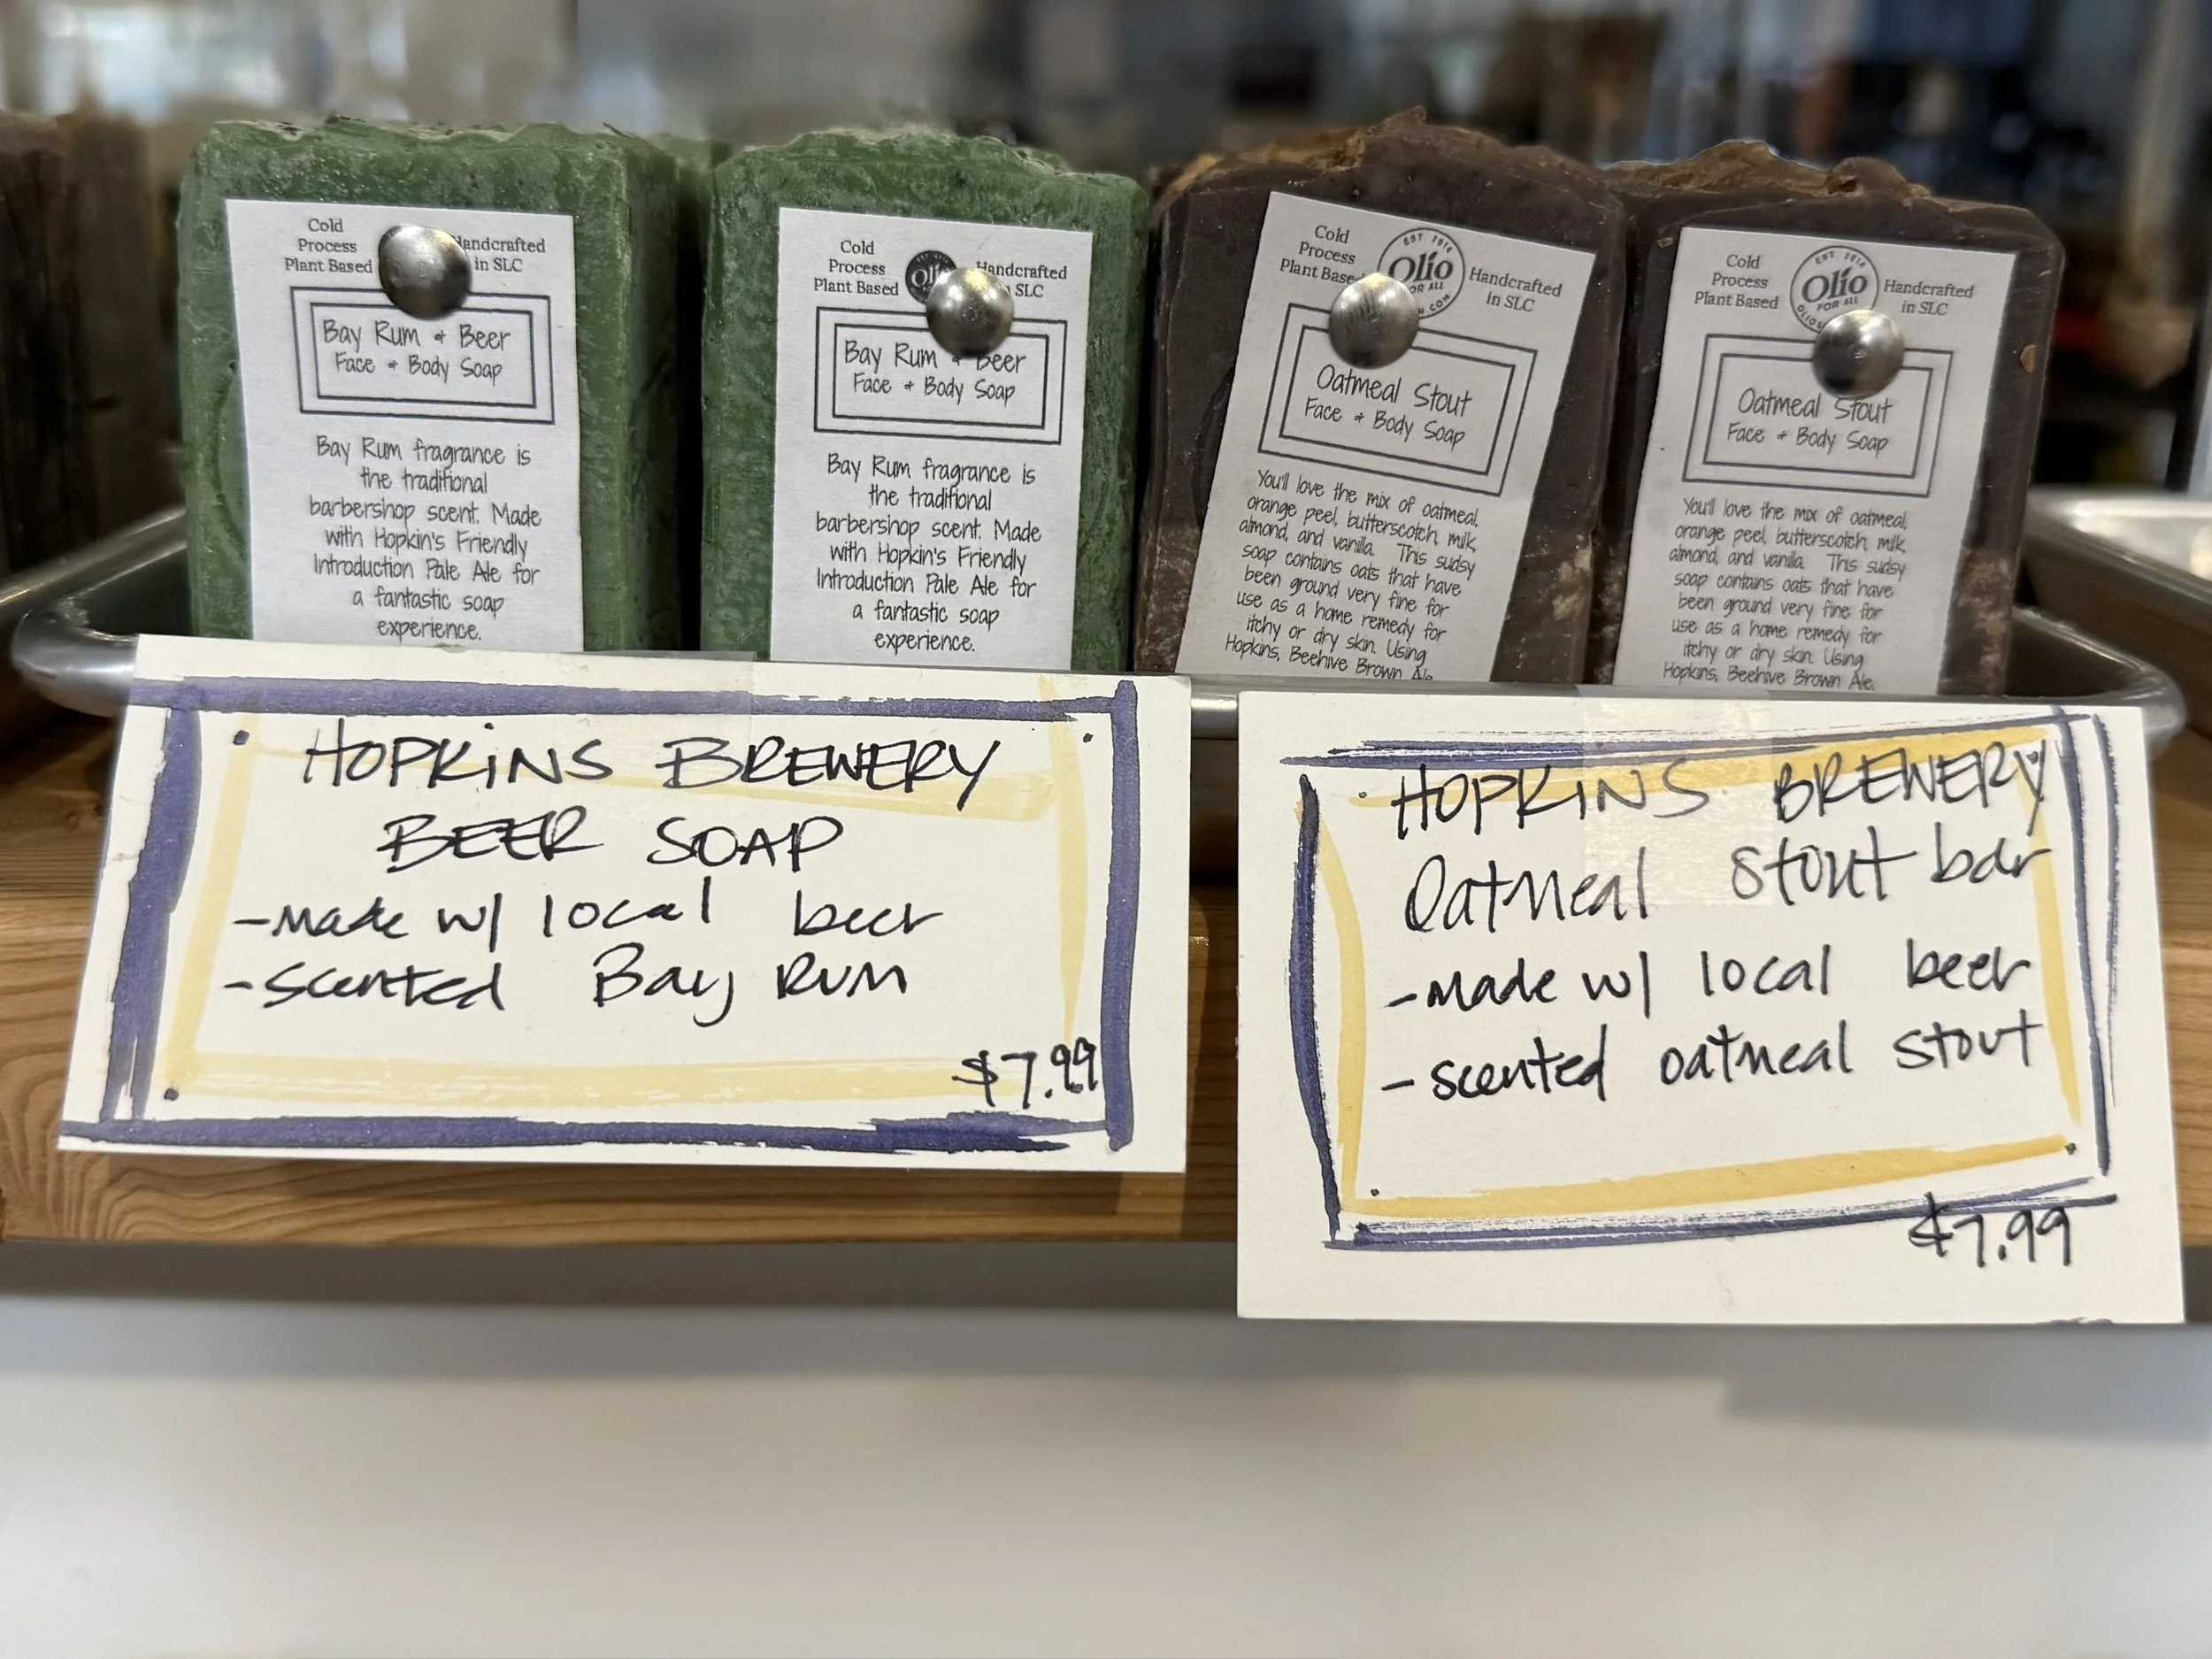 Cold
Process
Plant Based
in SLC
Bay Rum + Beer
Face + Body Soap
Bay Rum fragrance is
the traditional
barbershop scent. Made
with Hopkin's Friendly
Introduction Pale Ale for
a fantastic soap
experience.
Cold
Process
Plant Based
Olio
Handcrafted
SLC
Bay Rum + Beer
Face + Body Soap
Bay Rum fragrance is
the traditional
barbershop scent. Made
with Hopkin's Friendly
Introduction Pale Ale for
a fantastic soap
experience.
Cold
Process
Plant Based
EST 2014
Olio
FOR ALL
Handcrafted
in SLC
Oatmeal Stout
Face + Body Soap
You'll love the mix of oatmeal,
orange peel, butterscotch, milk,
almond, and vanilla. This sudsy
soap contains oats that have
been ground very fine for
use as a home remedy for
itchy or dry skin. Using
Hopkins, Beehive Brown Ale.
Cold
Process
Plant Based
EST 2014
Olio
FOR ALL
Handcrafted
in SLC
Oatmeal Stout
Face + Body Soap
You'll love the mix of oatmeal,
orange peel, butterscotch, milk,
almond, and vanilla. This sudsy
soap contains oats that have
been ground very fine for
use as a home remedy for
itchy or dry skin. Using
Hopkins, Beehive Brown Ale.
HOPKiNS BREWERY
BEER SOAP
-made w/ local beer
-scented Bay Rum
$7.99
HOPKiNS BREWERY
Oatmeal Stout bar
-made w/ local beer
-scented oatmeal stout
$7.99